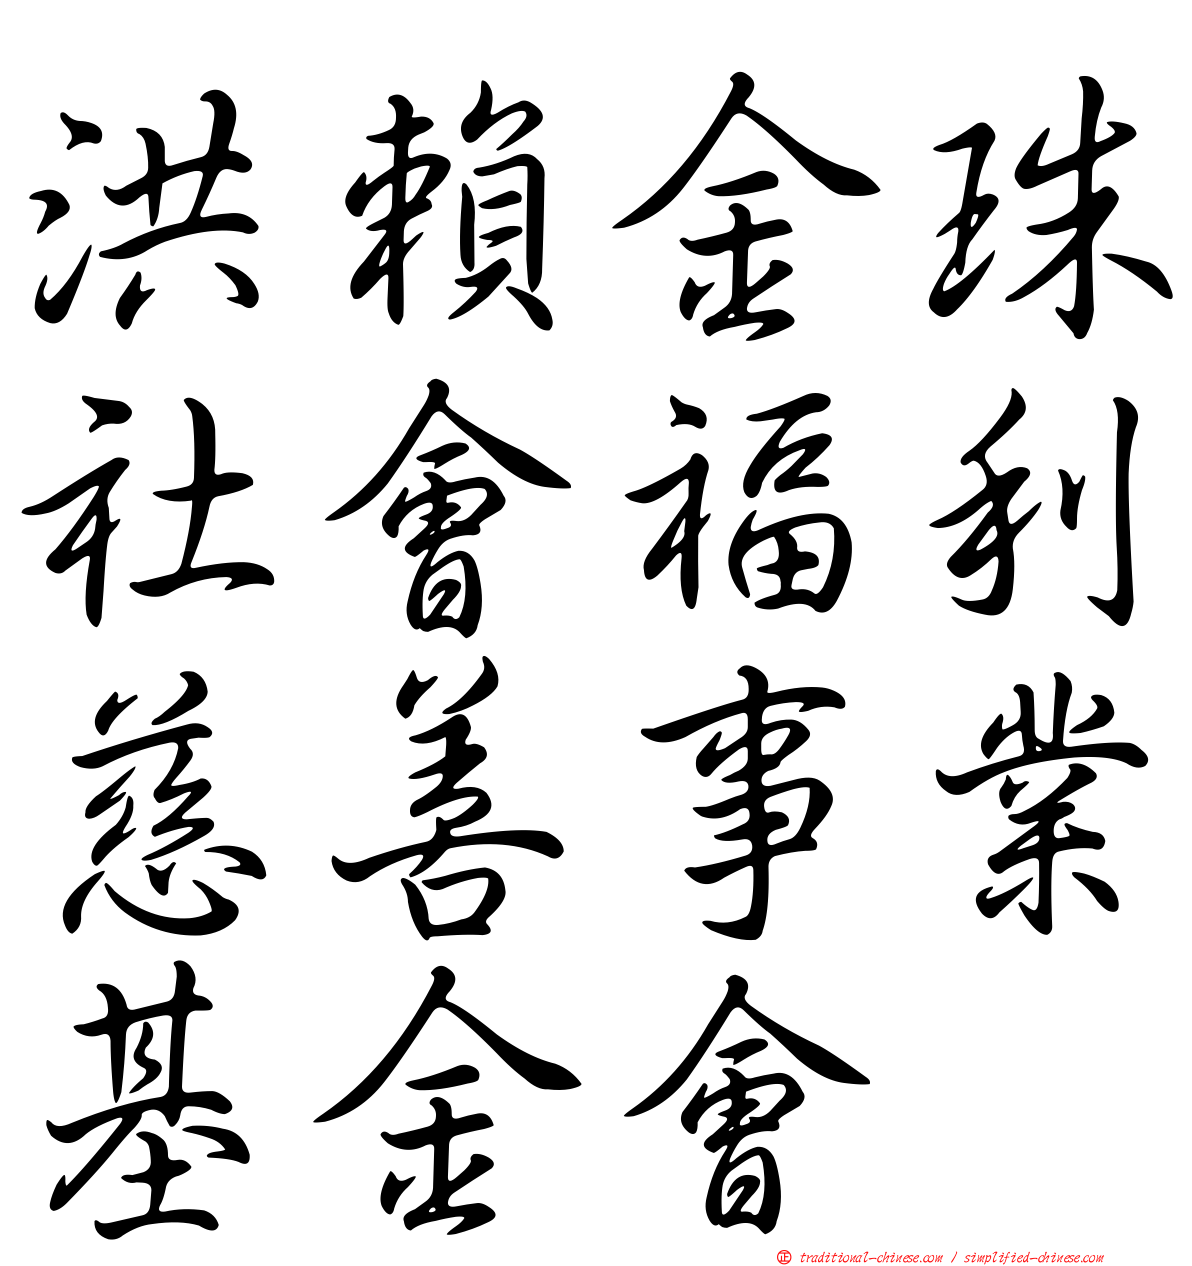 洪賴金珠
社會福利
慈善事業
基金會
正 traditional-chinese.com / simplified-chinese.com